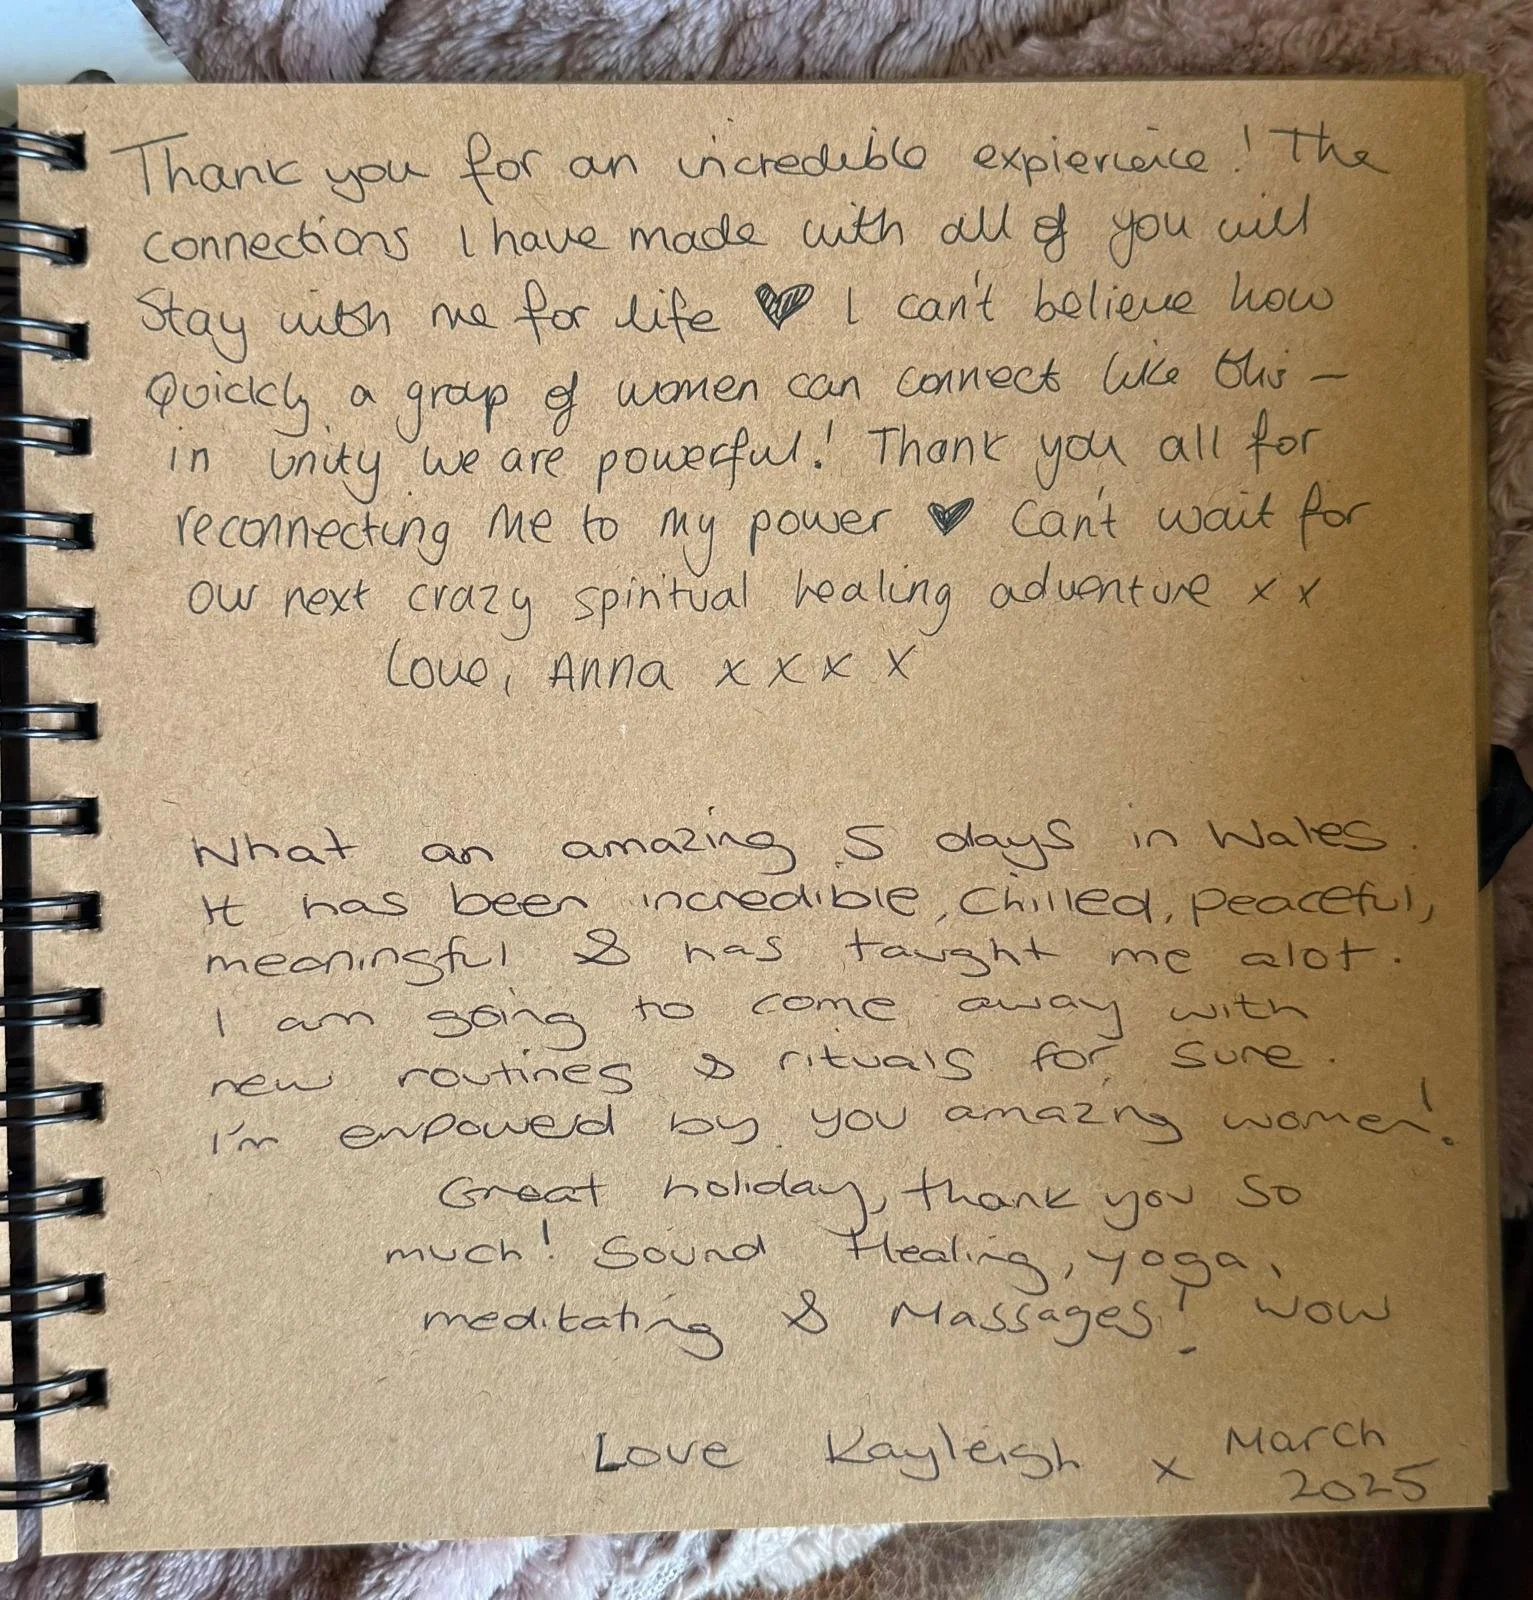 Thank you for an incredible expierience! The
connections I have made with all of you will
Stay with me for life ♥ I can't believe how
Quickly a group of women can connect like this –
in unity we are powerful! Thank you all for
reconnecting me to my power ♥ Can't wait for
our next crazy spiritual healing adventure x x
Love, Anna x x x x
What an amazing 5 days in Wales.
It has been incredible, chilled, peaceful,
meaningful & has taught me alot.
I am going to come away with
new routines & rituals for sure.
I'm empowered by you amazing women!
Great holiday, thank you so
much! Sound Healing, yoga,
meditating & Massages! wow
Love Kayleigh x March
2025